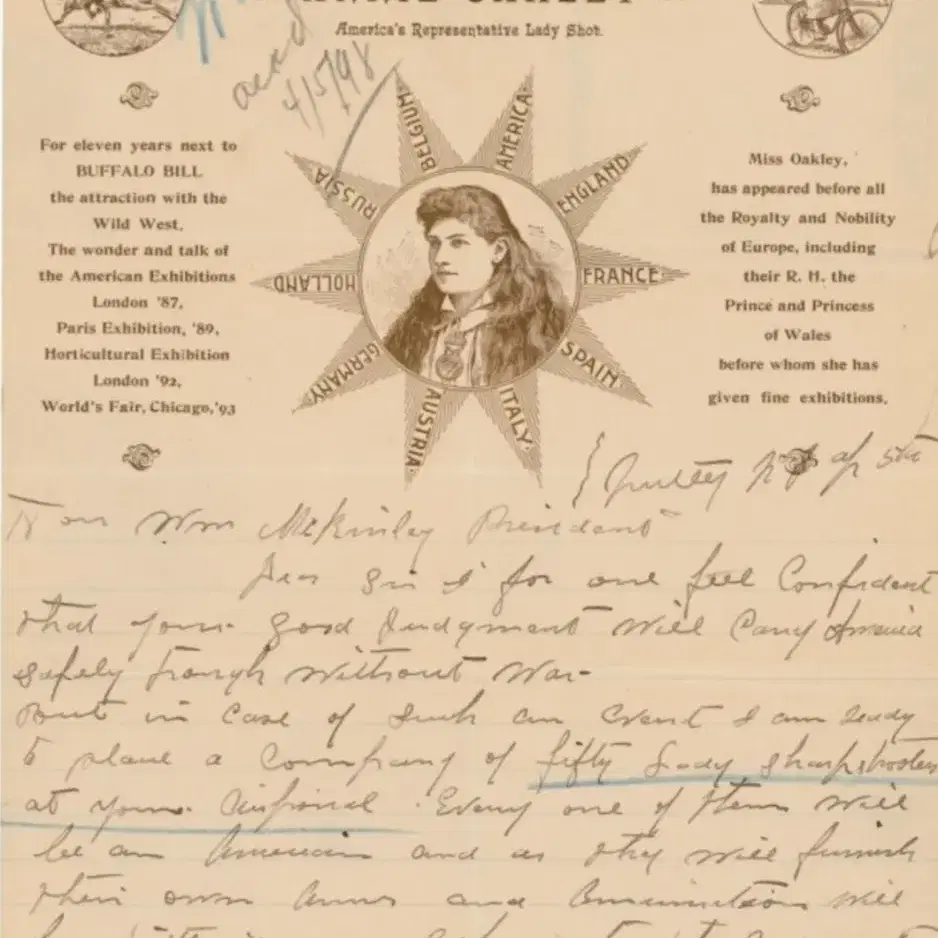 America's Representative Lady Shot.
ackd
4/5/98
For eleven years next to
BUFFALO BILL
the attraction with the
Wild West.
The wonder and talk of
the American Exhibitions
London '87,
Paris Exhibition, '89,
Horticultural Exhibition
London '92,
World's Fair, Chicago,'93
BELGIUM
AMERICA
ENGLAND
FRANCE
SPAIN
ITALY.
AUSTRIA
GERMANY
HOLLAND
RUSSIA
Miss Oakley,
has appeared before all
the Royalty and Nobility
of Europe, including
their R. H. the
Prince and Princess
of Wales
before whom she has
given fine exhibitions.
Nutley NJ Ap 5th
Hon Wm McKinley President
Dear Sir I for one feel Confident
that your good Judgment will Carry America
safely through without War-
But in Case of Such an Event I am ready
to place a Company of fifty Lady sharpshooters
at your disposal. Every one of them will
be an American and as they will furnish
their own Arms and Ammunition will